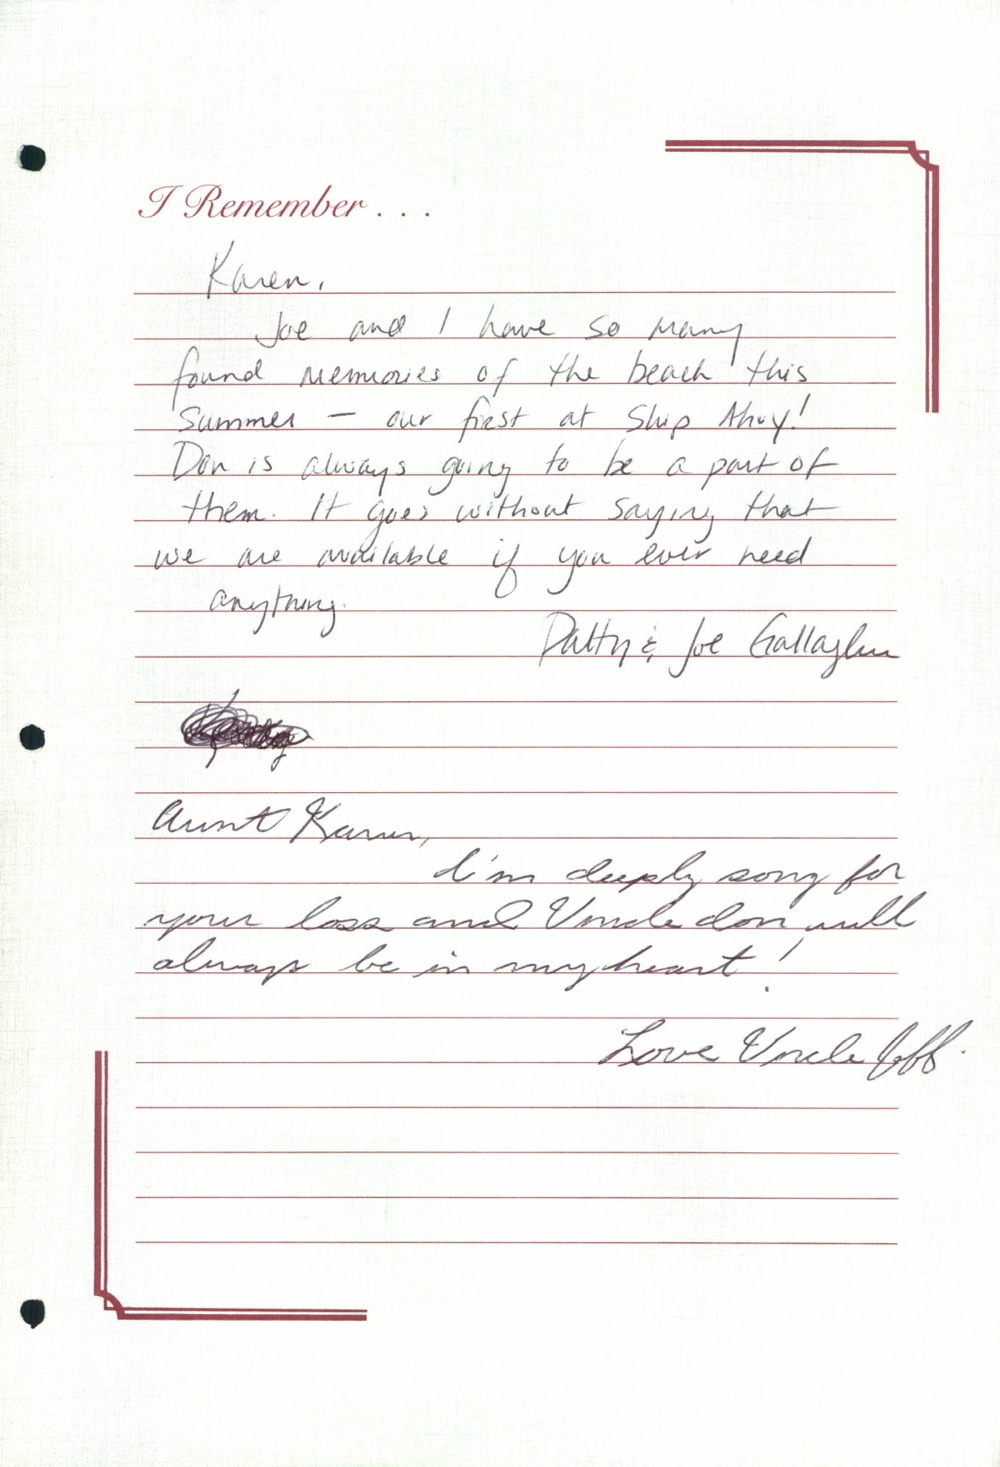 I Remember . . .
Karen,
Joe and I have so many
found memories of the beach this
summer — our first at Ship Ahoy!
Don is always going to be a part of
them. It goes without saying that
we are available if you ever need
anything.
Patty & Joe Gallagher
Aunt Karen,
I'm deeply sorry for
your loss and Uncle don will
always be in my heart!
Love Uncle Jeff.